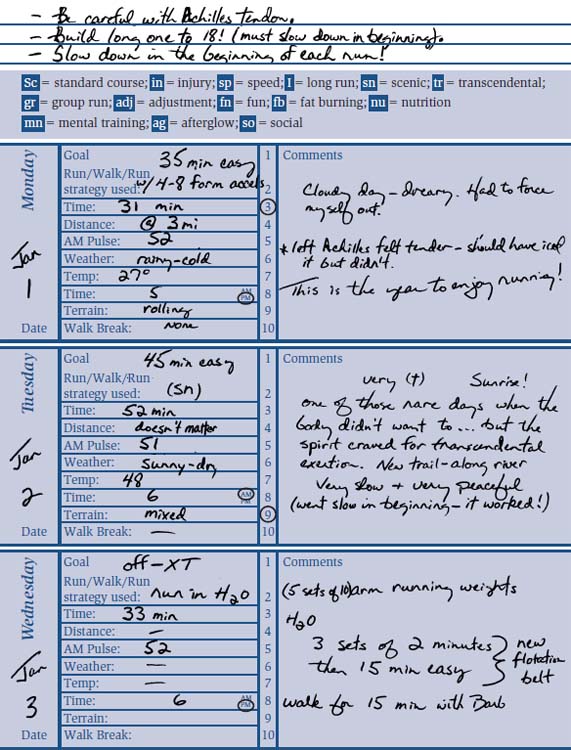 - Be careful with Achilles tendon.
- Build long one to 18! (must slow down in beginning).
- Slow down in the beginning of each run!
Sc = standard course; in = injury; sp = speed; I = long run; sn = scenic; tr = transcendental;
gr = group run; adj = adjustment; fn = fun; fb = fat burning; nu = nutrition
mn = mental training; ag = afterglow; so = social
Monday
Jan
1
Date
Goal 35 min easy
Run/Walk/Run
strategy used: w/4-8 form accels
Time: 31 min
Distance: @ 3 mi
AM Pulse: 52
Weather: rainy-cold
Temp: 27°
Time: 5 AM PM
Terrain: rolling
Walk Break: none
1
2
3
4
5
6
7
8
9
10
Comments
Cloudy day - dreary. Had to force
myself out.
* left Achilles felt tender - should have iced
it but didn't.
This is the year to enjoy running!
Tuesday
Jan
2
Date
Goal 45 min easy
Run/Walk/Run
strategy used: (sn)
Time: 52 min
Distance: doesn't matter
AM Pulse: 51
Weather: sunny-dry
Temp: 48
Time: 6 AM PM
Terrain: mixed
Walk Break: —
1
2
3
4
5
6
7
8
9
10
Comments
very (t) Sunrise!
one of those rare days when the
body didn't want to ... but the
spirit craved for transcendental
exertion. New trail - along river
Very slow + very peaceful
(went slow in beginning - it worked!)
Wednesday
Jan
3
Date
Goal off-XT
Run/Walk/Run
strategy used: run in H2O
Time: 33 min
Distance: —
AM Pulse: 52
Weather: —
Temp: —
Time: 6 AM PM
Terrain:
Walk Break:
1
2
3
4
5
6
7
8
9
10
Comments
(5 sets of 10) arm running weights
H2O
3 sets of 2 minutes } new
then 15 min easy } flotation
belt
walk for 15 min with Barb